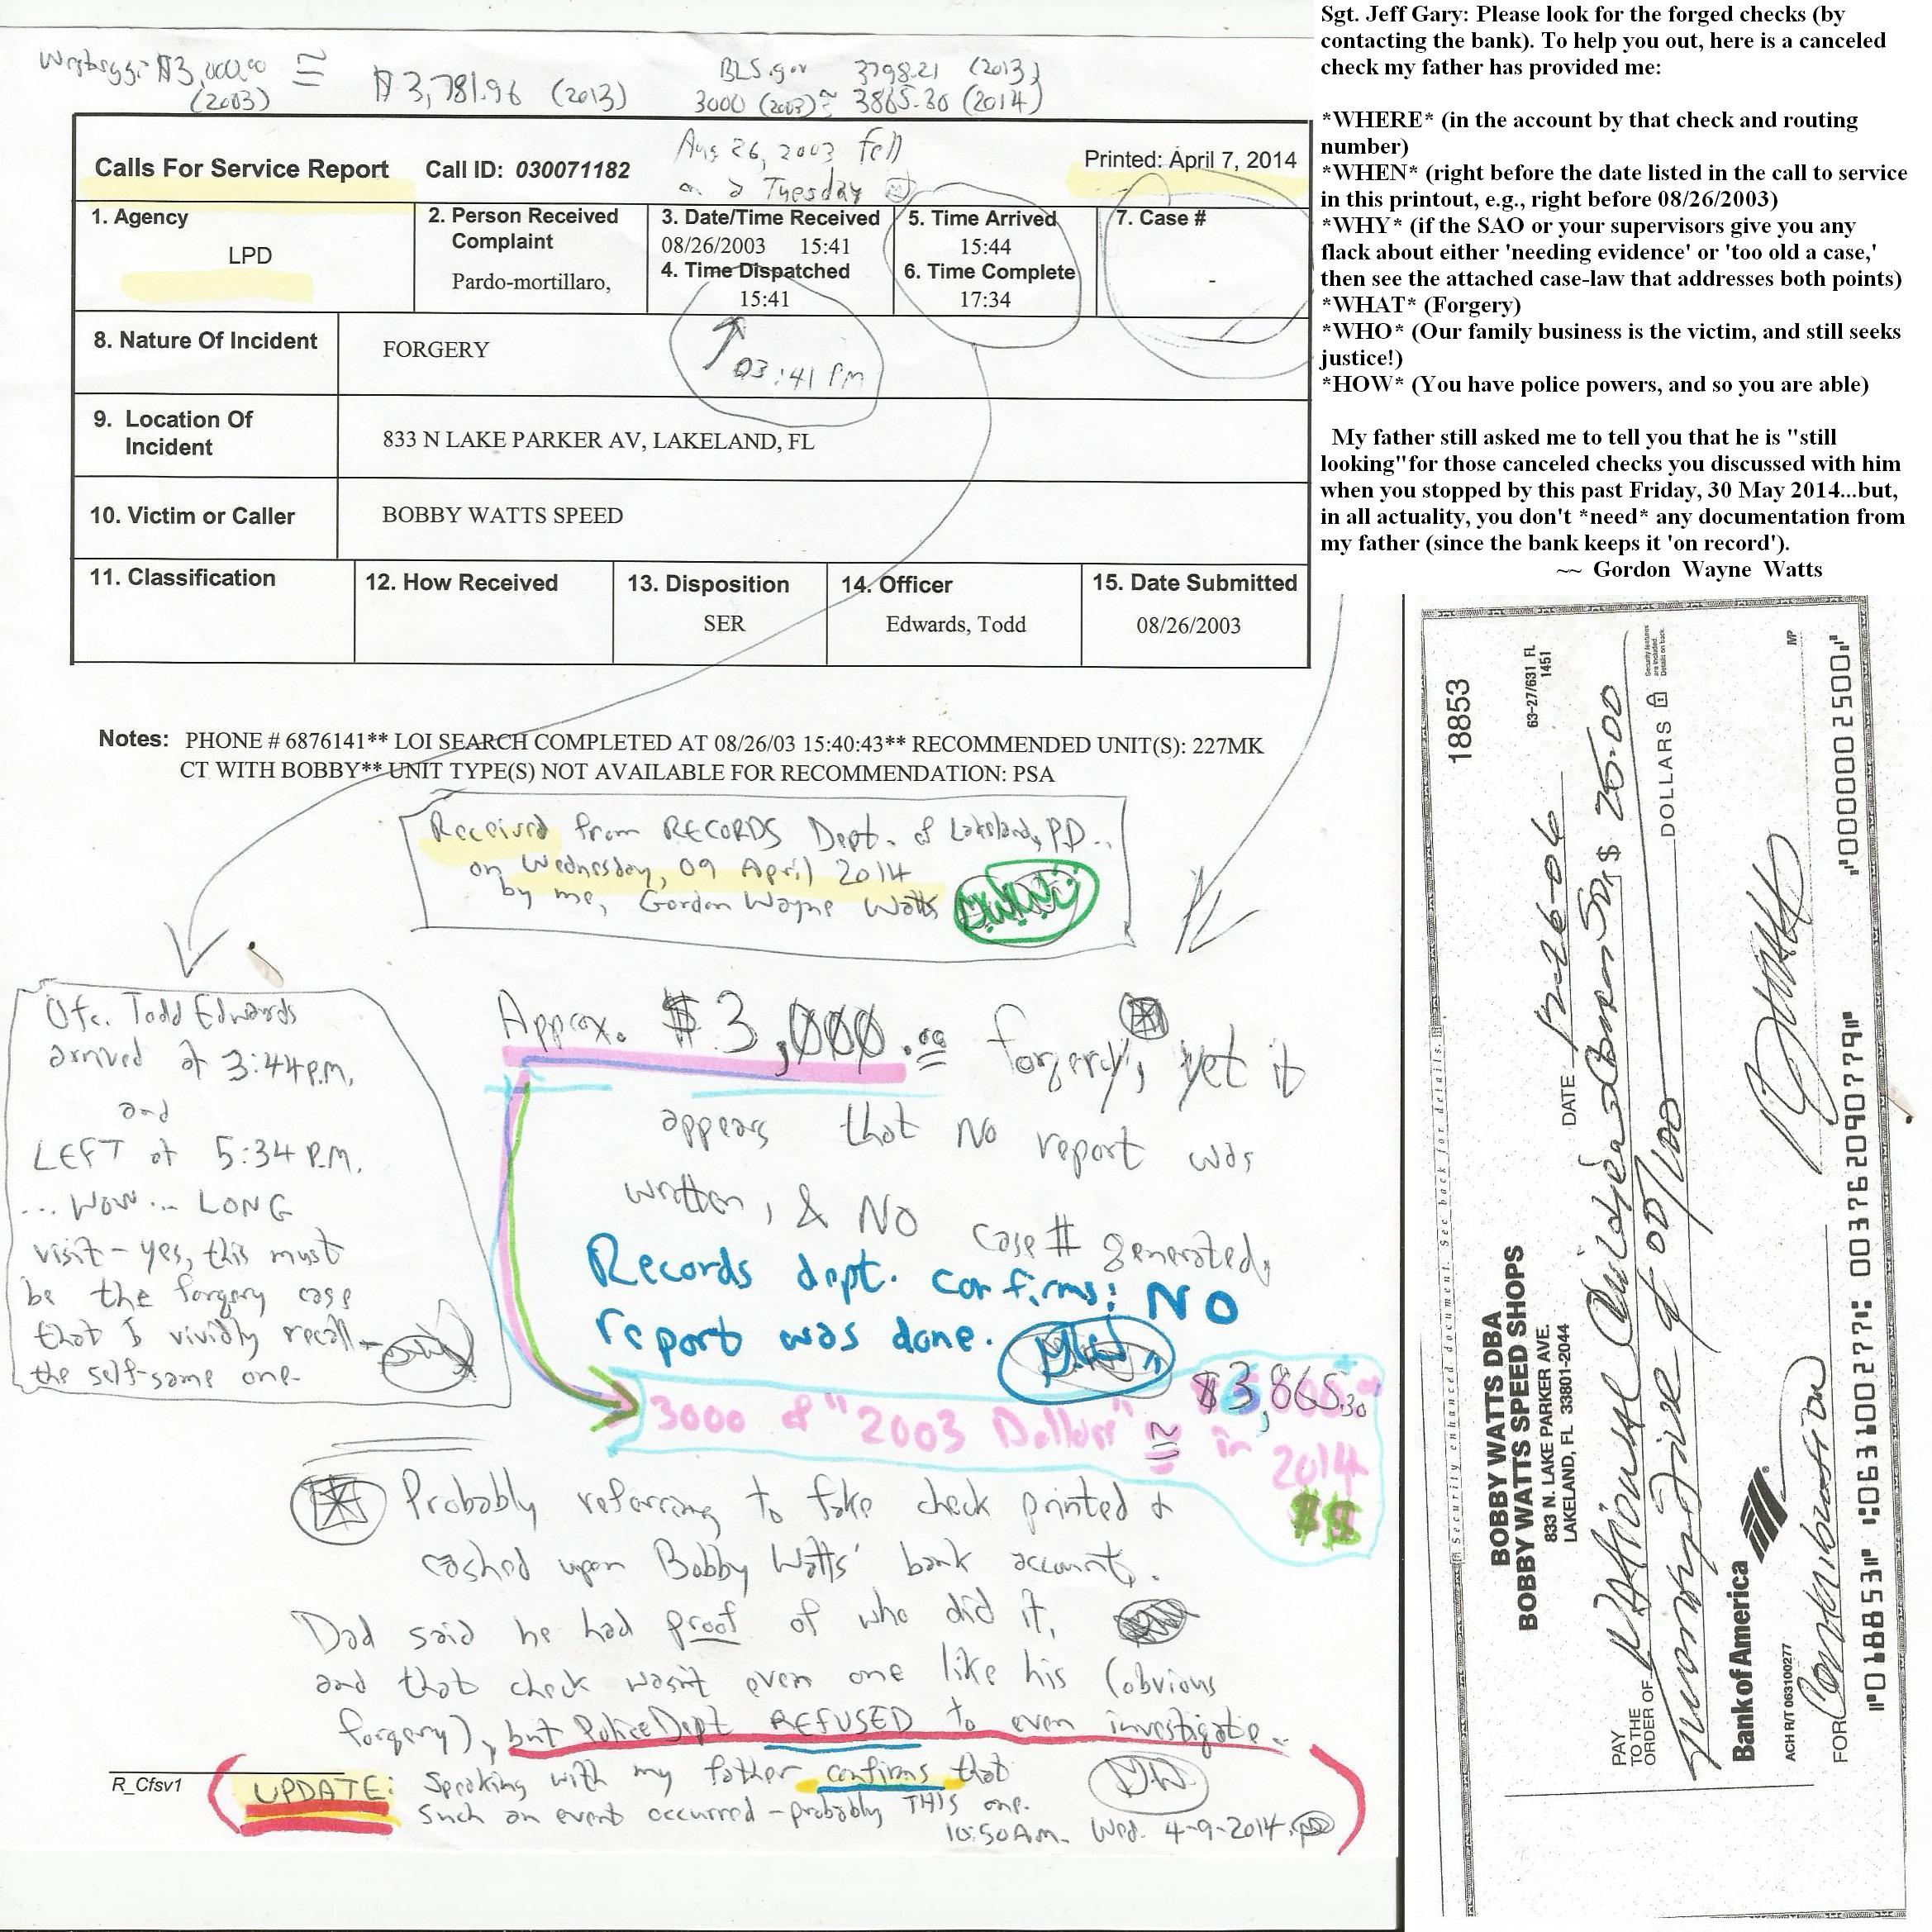 Sgt. Jeff Gary: Please look for the forged checks (by
contacting the bank). To help you out, here is a canceled
check my father has provided me:
*WHERE* (in the account by that check and routing
number)
*WHEN* (right before the date listed in the call to service
in this printout, e.g., right before 08/26/2003)
*WHY* (if the SAO or your supervisors give you any
flack about either 'needing evidence' or 'too old a case,'
then see the attached case-law that addresses both points)
*WHAT* (Forgery)
*WHO* (Our family business is the victim, and still seeks
justice!)
*HOW* (You have police powers, and so you are able)
My father still asked me to tell you that he is "still
looking"for those canceled checks you discussed with him
when you stopped by this past Friday, 30 May 2014...but,
in all actuality, you don't *need* any documentation from
my father (since the bank keeps it 'on record').
~~ Gordon Wayne Watts
$3,000.00 ≅ $3,781.96 (2013)
(2003)
BLS.gov 3798.21 (2013)
3000 (2003) ≅ 3865.30 (2014)
Calls For Service Report
Call ID: 030071182
Aug 26, 2003 fell
on a Tuesday
Printed: April 7, 2014
1. Agency
LPD
2. Person Received
Complaint
Pardo-mortillaro,
3. Date/Time Received
08/26/2003 15:41
4. Time Dispatched
15:41
5. Time Arrived
15:44
6. Time Complete
17:34
7. Case #
-
8. Nature Of Incident
FORGERY
03:41 PM
9. Location Of
Incident
833 N LAKE PARKER AV, LAKELAND, FL
10. Victim or Caller
BOBBY WATTS SPEED
11. Classification
12. How Received
13. Disposition
SER
14. Officer
Edwards, Todd
15. Date Submitted
08/26/2003
Notes: PHONE # 6876141** LOI SEARCH COMPLETED AT 08/26/03 15:40:43** RECOMMENDED UNIT(S): 227MK
CT WITH BOBBY** UNIT TYPE(S) NOT AVAILABLE FOR RECOMMENDATION: PSA
Received from RECORDS Dept. of Lakeland, P.D..
on Wednesday, 09 April 2014
by me, Gordon Wayne Watts
Ofc. Todd Edwards
arrived at 3:44 P.M.
and
LEFT at 5:34 P.M.
... Wow ... LONG
visit - yes, this must
be the forgery case
that I vividly recall -
the self-same one.
Approx. $3,000.00 forgery, yet it
appears that No report was
written, & NO case # generated.
Records dept. confirms: NO
report was done.
3000 of "2003 Dollars" ≅ $3,865.30
in
2014
$$
Probably referring to fake check printed &
cashed upon Bobby Watts' bank account.
Dad said he had proof of who did it,
and that check wasn't even one like his (obvious
forgery), but Police Dept REFUSED to even investigate.
R_Cfsv1
UPDATE: Speaking with my father confirms that
such an event occurred - probably THIS one.
10:50 AM Wed. 4-9-2014
Security enhanced document. See back for details.
BOBBY WATTS DBA
BOBBY WATTS SPEED SHOPS
833 N. LAKE PARKER AVE.
LAKELAND, FL 33801-2044
18853
63-27/631 FL
1451
DATE 12-26-06
PAY
TO THE
ORDER OF National Childrens $ 25.00
Twenty Five & 00/100 DOLLARS
Security features
are included.
Details on back.
Bank of America
ACH R/T 063100277
FOR Contribution
MP
⑈018853⑈ ⑆063100277⑆ 003762090779⑈ ⑈0000002500⑈